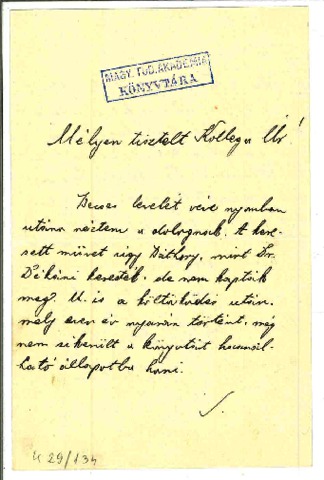 MAGY. TUD. AKADEMIA
KÖNYVTÁRA
Mélyen tisztelt Kollega Úr!
Becses levelét véve nyomban
utána néztem a dolognak. A kere-
sett művet úgy Báthory, mint Dr.
Dékáni keresték, de nem kapták
meg. U. is a költözködés után,
mely ezen év nyarán történt, még
nem sikerült a könyvtárt használ-
ható állapotba hozni.
K 29/134